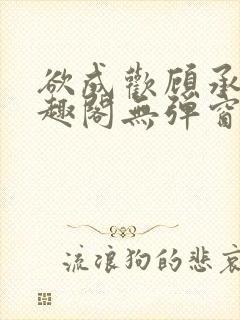 欲成歡顧承
趣閣無彈窗
流浪狗的悲哀